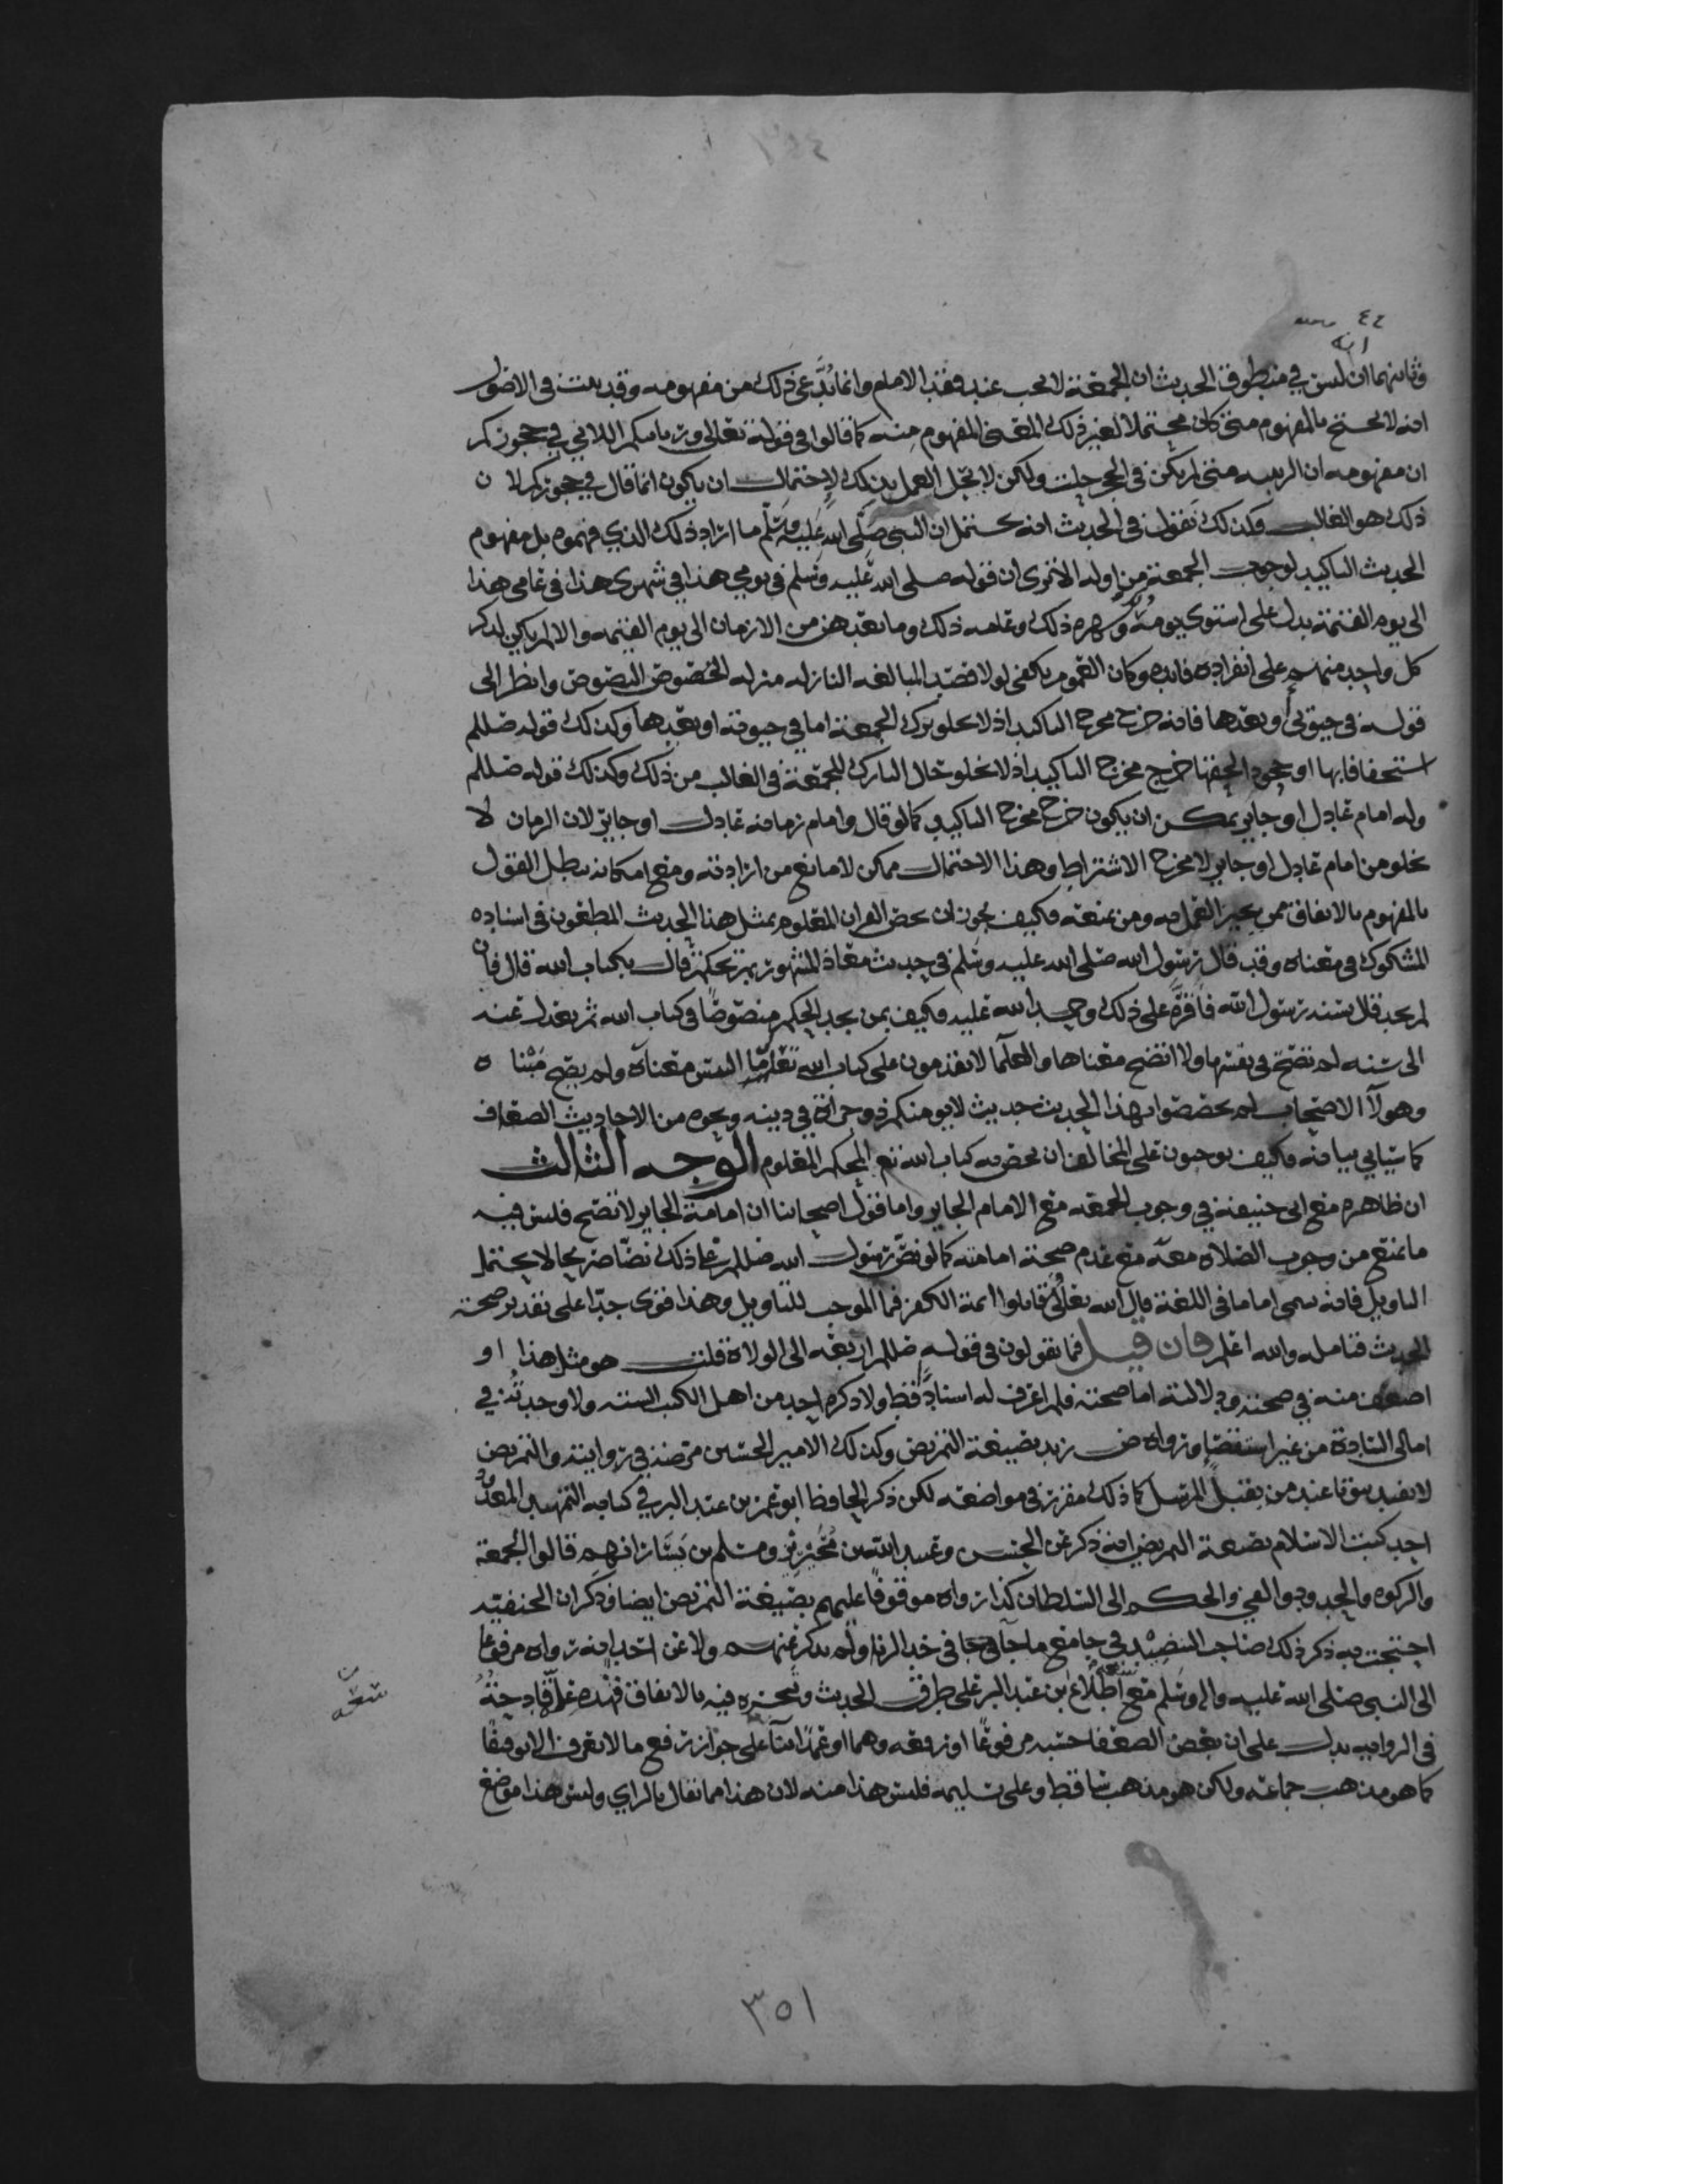 ٤٤
انه
وثانيهما ان ليس في منطوق الحديث ان الجمعة لا تجب عند فقد الامام وانما يدعى ذلك من مفهومه وقد ثبت في الاصول
انه لا يحتج بالمفهوم متى كان محتملا لغير ذلك المعنى المفهوم منه كما قالوا في قوله تعالى وربائبكم اللاتي في حجوركم
ان مفهومه ان الربيبه متى لم تكن في الحجر حلت ولكن لا يحل العمل بذلك لاحتمال ان يكون انما قال في حجوركم لان
ذلك هو الغالب وكذلك نقول في الحديث انه يحتمل ان النبي صلى الله عليه وسلم ما اراد ذلك الذي فهموه بل مفهوم
الحديث التاكيد لوجوب الجمعة من اوله الا ترى ان قوله صلى الله عليه وسلم في يومي هذا في شهري هذا في عامي هذا
الى يوم القيمة يدل على استوى يومه وشهره ذلك وعامه ذلك وما بعدهن من الازمان الى يوم القيمه والا لم يكن لذكر
كل واحد منها على انفراده فائده وكان العموم يكفي لولا قصد المبالغه النازله منزله الخصوص النصوص وانظر الى
قوله في حيوتي او بعدها فانه خرج مخرج التاكيد اذ لا يخلو ترك الجمعة اما في حيوته او بعدها وكذلك قوله صللم
استخفافا بها او جحودا لحقها خرج مخرج التاكيد اذ لا يخلو حال التارك للجمعة في الغالب من ذلك وكذلك قوله صللم
وله امام عادل او جاير يمكن ان يكون خرج مخرج التاكيد كما لو قال وامام زمانه عادل او جاير لان الزمان لا
يخلو من امام عادل او جاير لا مخرج الاشتراط وهذا الاحتمال ممكن لا مانع من ارادته ومع امكانه يبطل القول
بالمفهوم بالاتفاق ممن يجيز العمل به ومن يمنعه فكيف يجوز ان يخص القران المعلوم بمثل هذا الحديث المطعون في اسناده
المشكوك في معناه وقد قال رسول الله صلى الله عليه وسلم في حديث معاذ المشهور بم تحكم قال بكتاب الله قال فان
لم تجد قال بسنه رسول الله فاقره على ذلك وحمد الله عليه فكيف بمن يجد الحكم منصوصا في كتاب الله ثم يعدل عنه
الى سنه لم تصح في نفسها ولا اتضح معناها والعلما لا يقدمون على كتاب الله تعالى ما التبس معناه ولم يصح مبناه
وهولا الاصحاب لم يخصصوا بهذا الحديث حديث لا يؤمنكم ذو جراة في دينه ونحوه من الاحاديث الضعاف
كما سياتي بيانه فكيف يوجبون على المخالف ان يخص به كتاب الله نع المحكم المعلوم الوجه الثالث
ان ظاهره مع ابي حنيفة في وجوب الجمعه مع الامام الجاير واما قول اصحابنا ان امامة الجاير لا تصح فليس فيه
ما يمنع من وجوب الصلاه معه مع عدم صحة امامته كما لو نص رسول الله صللم على ذلك نصا صريحا لا يحتمل
التاويل فانه يسمى اماما في اللغة قال الله تعالى فقاتلوا ائمة الكفر فما الموجب للتاويل وهذا قوى جدا على تقدير صحة
الحديث فتامله والله اعلم فان قيل فما تقولون في قوله صللم اربعه الى الولاه قلت هو مثل هذا او
اضعف منه في صحته ودلالته اما صحته فلم اعرف له اسنادا قط ولا ذكره احد من اهل الكتب الستة ولا وجدته في
امالي السادة من غير استقصا ورواه ض زيد بصيغة التمريض وكذلك الامير الحسين مرضه في روايته والتمريض
لا يفيد ثبوتا عند من يقبل المرسل كما ذلك مقرر في مواضعه لكن ذكر الحافظ ابو عمر بن عبد البر في كتابه التمهيد المعدود
احد كتب الاسلام بصيغة التمريض انه ذكر عن الحسن وعبد الله بن محيريز ومسلم بن يسار انهم قالوا الجمعة
والزكوه والحدود والفي والحكم الى السلطان كذا رواه موقوفا عليهم بصيغة التمريض ايضا وذكر ان الحنفيه
احتجت به ذكر ذلك صاحب التنضيد في جامع ما جا في حد الزنا ولم يذكر عنهم ولا عن احد انه رواه مرفوعا
الى النبي صلى الله عليه واله وسلم مع اطلاع بن عبد البر على طرق الحديث وتبحره فيه بالاتفاق فهذه علة قادحة
في الرواية يدل على ان بعض الضعفا حسبه مرفوعا او رفعه وهما او عمدا بنا على جواز رفع ما لا يعرف الا توقيفا
كما هو مذهب جماعه ولكن هو مذهب ساقط وعلى تسليمه فليس هذا منه لان هذا مما يقال بالراي وليس هذا موضع
٣٥١